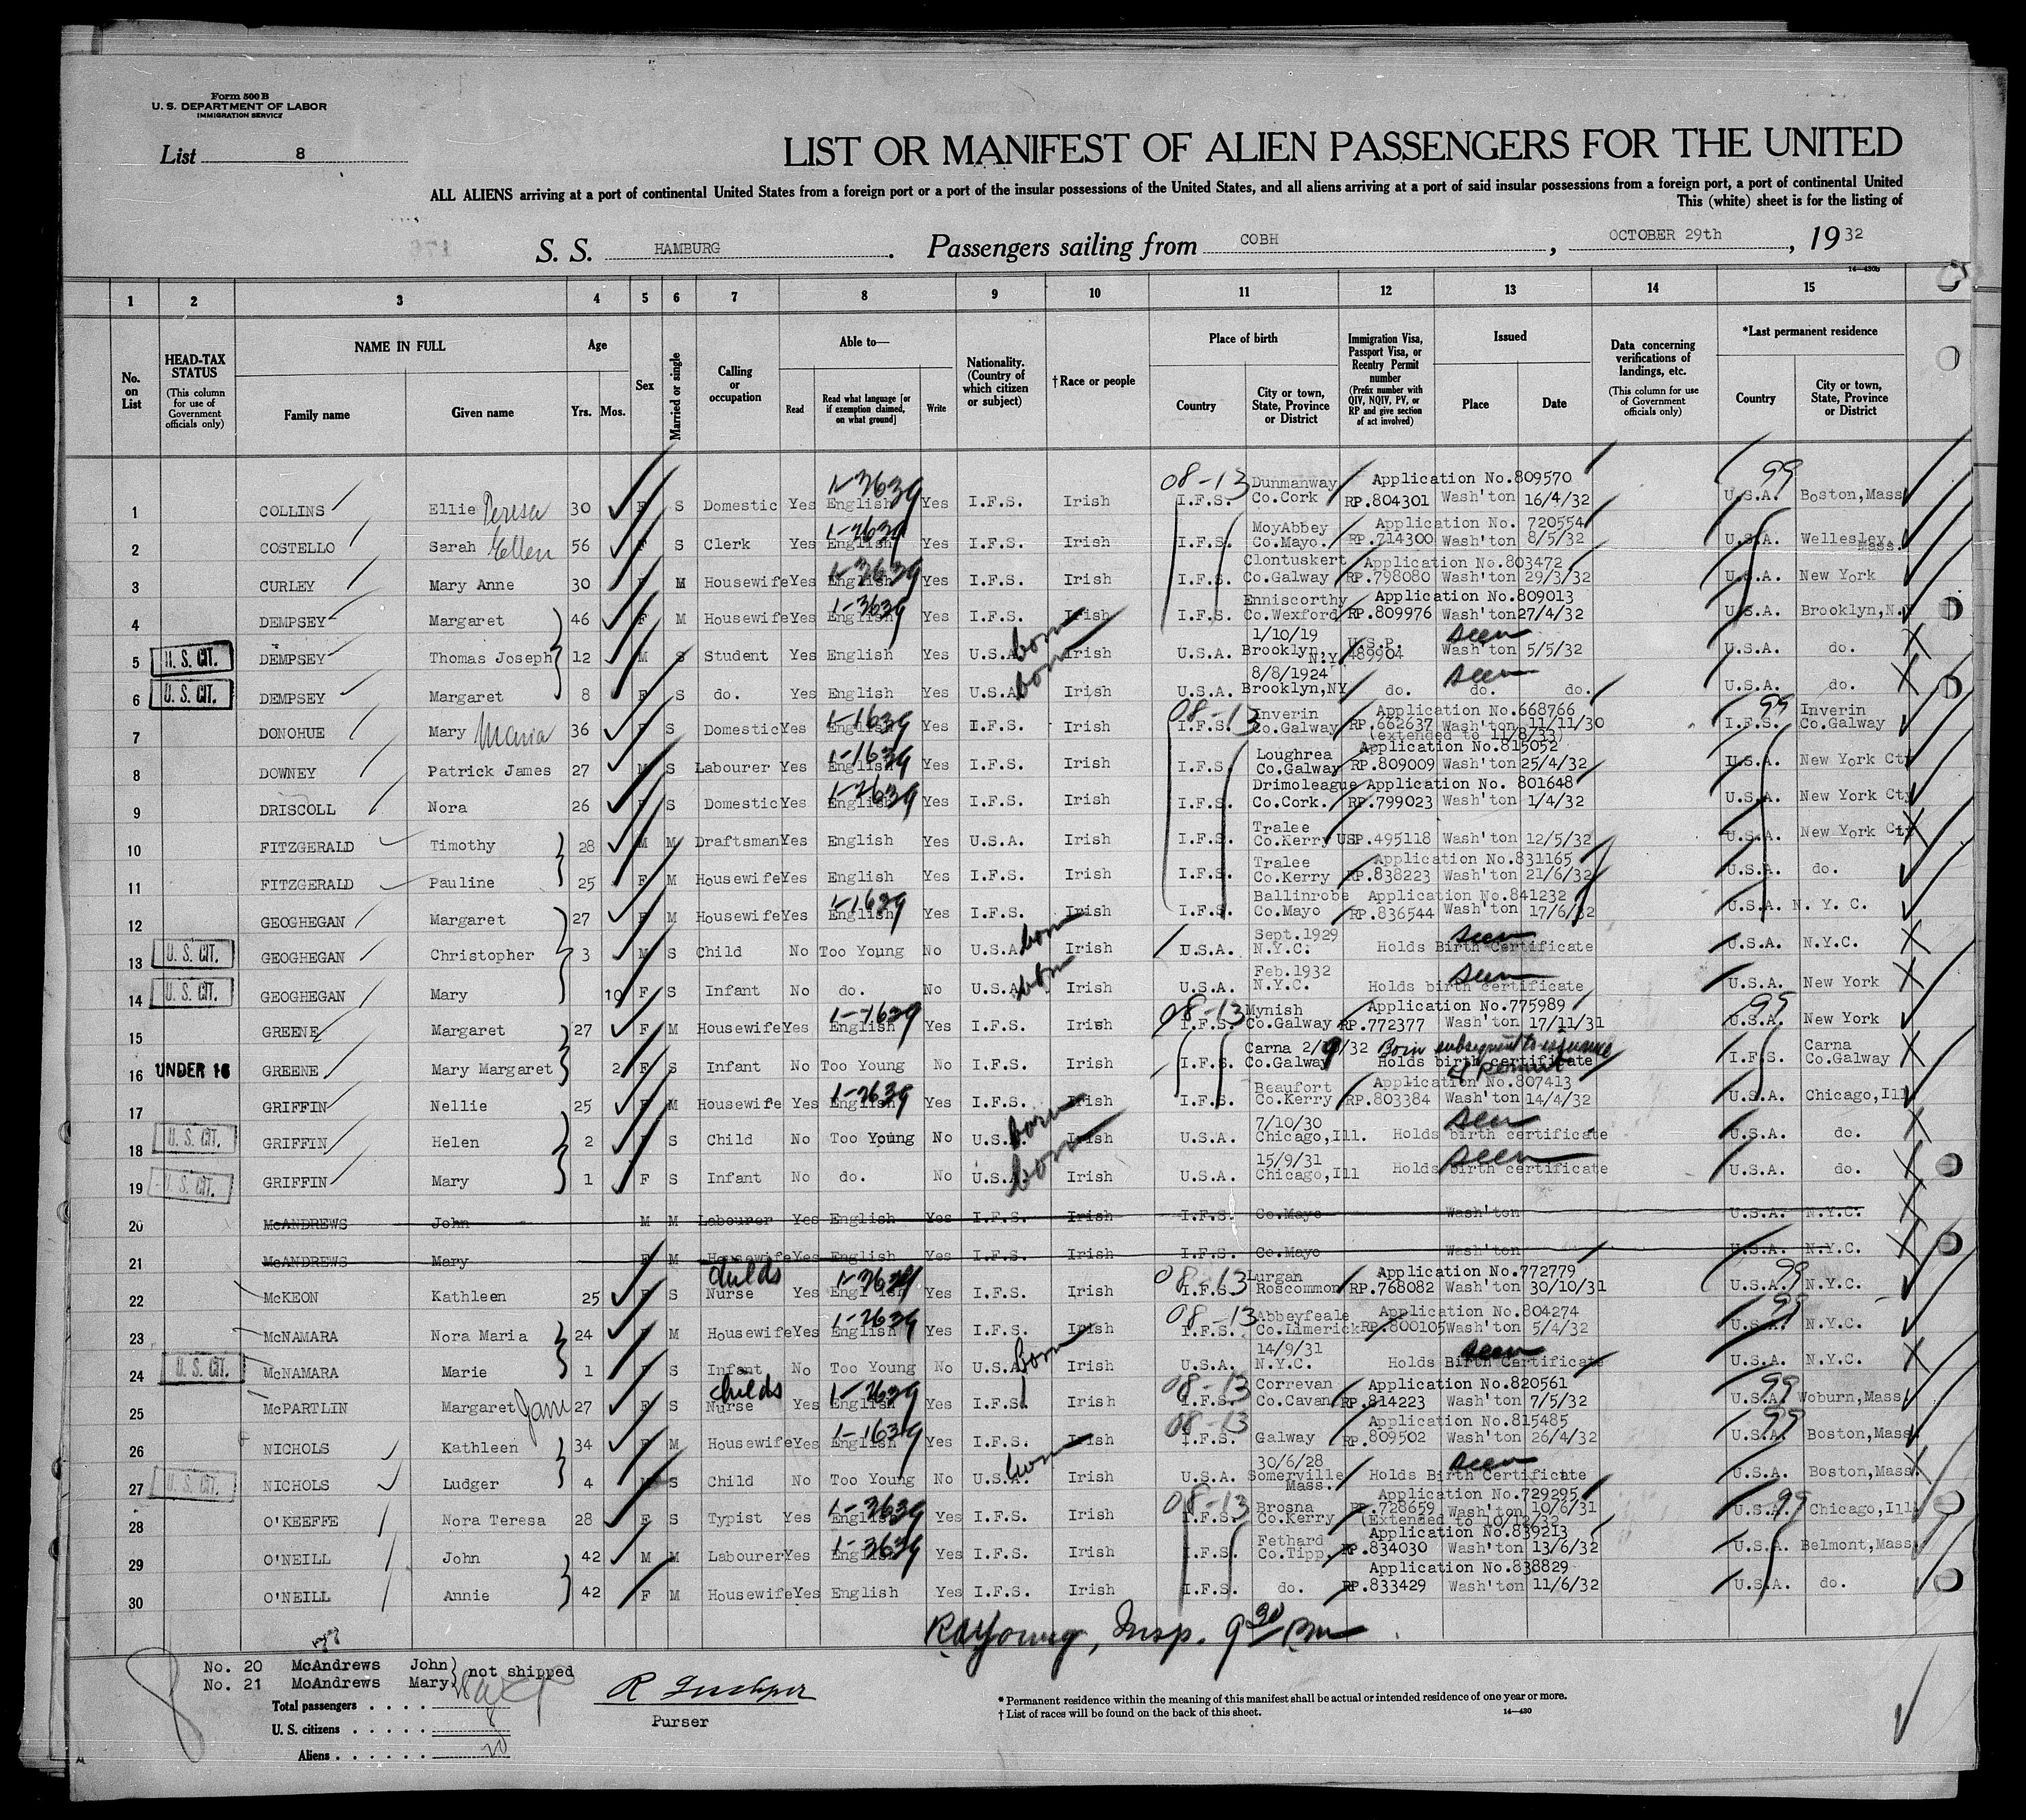 Form 500 B
U. S. DEPARTMENT OF LABOR
IMMIGRATION SERVICE
List 8
LIST OR MANIFEST OF ALIEN PASSENGERS FOR THE UNITED
ALL ALIENS arriving at a port of continental United States from a foreign port or a port of the insular possessions of the United States, and all aliens arriving at a port of said insular possessions from a foreign port, a port of continental United
This (white) sheet is for the listing of
S. S. HAMBURG. Passengers sailing from COBH, OCTOBER 29th, 1932
14—430b
1 2 3 4 5 6 7 8 9 10 11 12 13 14 15
No. on List
HEAD-TAX STATUS (This column for use of Government officials only)
NAME IN FULL Family name Given name
Age Yrs. Mos.
Sex
Married or single
Calling or occupation
Able to— Read Read what language [or if exemption claimed, on what ground] Write
Nationality. (Country of which citizen or subject)
†Race or people
Place of birth Country City or town, State, Province or District
Immigration Visa, Passport Visa, or Reentry Permit number (Prefix number with QIV, NQIV, PV, or RP and give section of act involved)
Issued Place Date
Data concerning verifications of landings, etc. (This column for use of Government officials only)
*Last permanent residence Country City or town, State, Province or District
1 COLLINS Ellie Teresa 30 F S Domestic Yes English 1-3639 Yes I.F.S. Irish 08-13 I.F.S. Dunmanway Co.Cork Application No.809570 RP.804301 Wash'ton 16/4/32 99 U.S.A. Boston,Mass
2 COSTELLO Sarah Ellen 56 F S Clerk Yes English 1-2639 Yes I.F.S. Irish I.F.S. MoyAbbey Co.Mayo. Application No. 720554 RP.714300 Wash'ton 8/5/32 U.S.A. Wellesley, Mass.
3 CURLEY Mary Anne 30 F M Housewife Yes English 1-3639 Yes I.F.S. Irish I.F.S. Clontuskert Co.Galway Application No.803472 RP.798080 Wash'ton 29/3/32 U.S.A. New York
4 DEMPSEY Margaret 46 F M Housewife Yes English 1-3639 Yes I.F.S. Irish I.F.S. Enniscorthy Co.Wexford Application No.809013 RP.809976 Wash'ton 27/4/32 U.S.A. Brooklyn,N.Y
5 U. S. CIT. DEMPSEY Thomas Joseph 12 M S Student Yes English Yes U.S.A. born Irish U.S.A. 1/10/19 Brooklyn, N.Y. U.S.P. 489904 seen Wash'ton 5/5/32 U.S.A. do.
6 U. S. CIT. DEMPSEY Margaret 8 F S do. Yes English Yes U.S.A. born Irish U.S.A. 8/8/1924 Brooklyn,NY do. seen do. do. U.S.A. do.
7 DONOHUE Mary Maria 36 F S Domestic Yes English 1-1639 Yes I.F.S. Irish 08-13 I.F.S. Inverin Co.Galway Application No.668766 RP.662637 Wash'ton 11/11/30 (extended to 11/8/33) 99 I.F.S. Inverin Co.Galway
8 DOWNEY Patrick James 27 M S Labourer Yes English 1-1639 Yes I.F.S. Irish I.F.S. Loughrea Co.Galway Application No.815052 RP.809009 Wash'ton 25/4/32 U.S.A. New York Cty
9 DRISCOLL Nora 26 F S Domestic Yes English 1-2639 Yes I.F.S. Irish I.F.S. Drimoleague Co.Cork. Application No. 801648 RP.799023 Wash'ton 1/4/32 U.S.A. New York Cty
10 FITZGERALD Timothy 28 M M Draftsman Yes English Yes U.S.A. Irish I.F.S. Tralee Co.Kerry USP.495118 Wash'ton 12/5/32 U.S.A. New York Cty
11 FITZGERALD Pauline 25 F M Housewife Yes English Yes I.F.S. Irish I.F.S. Tralee Co.Kerry Application No.831165 RP.838223 Wash'ton 21/6/32 U.S.A. do.
12 GEOGHEGAN Margaret 27 F M Housewife Yes English 1-1639 Yes I.F.S. Irish I.F.S. Ballinrobe Co.Mayo Application No.841232 RP.836544 Wash'ton 17/6/32 U.S.A. N. Y. C.
13 U. S. CIT. GEOGHEGAN Christopher 3 M S Child No Too Young No U.S.A. born Irish U.S.A. Sept.1929 N.Y.C. seen Holds Birth Certificate U.S.A. N.Y.C.
14 U. S. CIT. GEOGHEGAN Mary 10 F S Infant No do. No U.S.A. born Irish U.S.A. Feb.1932 N.Y.C. seen Holds birth certificate U.S.A. New York
15 GREENE Margaret 27 F M Housewife Yes English 1-1639 Yes I.F.S. Irish 08-13 I.F.S. Mynish Co.Galway Application No.775989 RP.772377 Wash'ton 17/11/31 99 U.S.A. New York
16 UNDER 16 GREENE Mary Margaret 2 F S Infant No Too Young No I.F.S. Irish I.F.S. Carna 2/9/32 Co.Galway Born subsequent to issuance of Permit Holds birth certificate I.F.S. Carna Co.Galway
17 GRIFFIN Nellie 25 F M Housewife Yes English 1-2639 Yes I.F.S. Irish I.F.S. Beaufort Co.Kerry Application No.807413 RP.803384 Wash'ton 14/4/32 U.S.A. Chicago,Ill
18 U. S. CIT. GRIFFIN Helen 2 F S Child No Too Young No U.S.A. born Irish U.S.A. 7/10/30 Chicago,Ill. seen Holds birth certificate U.S.A. do.
19 U. S. CIT. GRIFFIN Mary 1 F S Infant No do. No U.S.A. born Irish U.S.A. 15/9/31 Chicago,Ill seen Holds birth certificate U.S.A. do.
20 McANDREWS John M M Labourer Yes English Yes I.F.S. Irish I.F.S. Co.Mayo Wash'ton U.S.A. N.Y.C.
21 McANDREWS Mary F M Housewife Yes English Yes I.F.S. Irish I.F.S. Co.Mayo Wash'ton U.S.A. N.Y.C.
22 McKEON Kathleen 25 F S Childs Nurse Yes English 1-2639 Yes I.F.S. Irish 08-13 I.F.S. Lurgan Roscommon Application No.772779 RP.768082 Wash'ton 30/10/31 99 U.S.A. N.Y.C.
23 McNAMARA Nora Maria 24 F M Housewife Yes English 1-2639 Yes I.F.S. Irish 08-13 I.F.S. Abbeyfeale Co.Limerick Application No.804274 RP.800105 Wash'ton 5/4/32 99 U.S.A. N.Y.C.
24 U. S. CIT. McNAMARA Marie 1 F S Infant No Too Young No U.S.A. Born Irish U.S.A. 14/9/31 N.Y.C. seen Holds Birth Certificate U.S.A. N.Y.C.
25 McPARTLIN Margaret Jane 27 F S Childs Nurse Yes English 1-2639 Yes I.F.S. Irish 08-13 I.F.S. Correvan Co.Cavan Application No.820561 RP.814223 Wash'ton 7/5/32 99 U.S.A. Woburn,Mass
26 NICHOLS Kathleen 34 F M Housewife Yes English 1-1639 Yes I.F.S. Irish 08-13 I.F.S. Galway Application No.815485 RP.809502 Wash'ton 26/4/32 99 U.S.A. Boston,Mass
27 U. S. CIT. NICHOLS Ludger 4 M S Child No Too Young No U.S.A. born Irish U.S.A. 30/6/28 Somerville Mass. seen Holds Birth Certificate U.S.A. Boston,Mass.
28 O'KEEFFE Nora Teresa 28 F S Typist Yes English 1-3639 Yes I.F.S. Irish 08-13 I.F.S. Brosna Co.Kerry Application No.729295 RP.728659 Wash'ton 10/6/31 (Extended to 10/12/32 99 U.S.A. Chicago,Ill
29 O'NEILL John 42 M M Labourer Yes English 1-3639 Yes I.F.S. Irish I.F.S. Fethard Co.Tipp. Application No.839213 RP.834030 Wash'ton 13/6/32 U.S.A. Belmont,Mass
30 O'NEILL Annie 42 F M Housewife Yes English Yes I.F.S. Irish I.F.S. do. Application No.838829 RP.833429 Wash'ton 11/6/32 U.S.A. do.
RAYoung, Insp. 9 30 Pm
No. 20 McAndrews John
No. 21 McAndrews Mary } not shipped
Total passengers 28
U. S. citizens 8
Aliens 20
Purser
* Permanent residence within the meaning of this manifest shall be actual or intended residence of one year or more.
† List of races will be found on the back of this sheet.
14—430